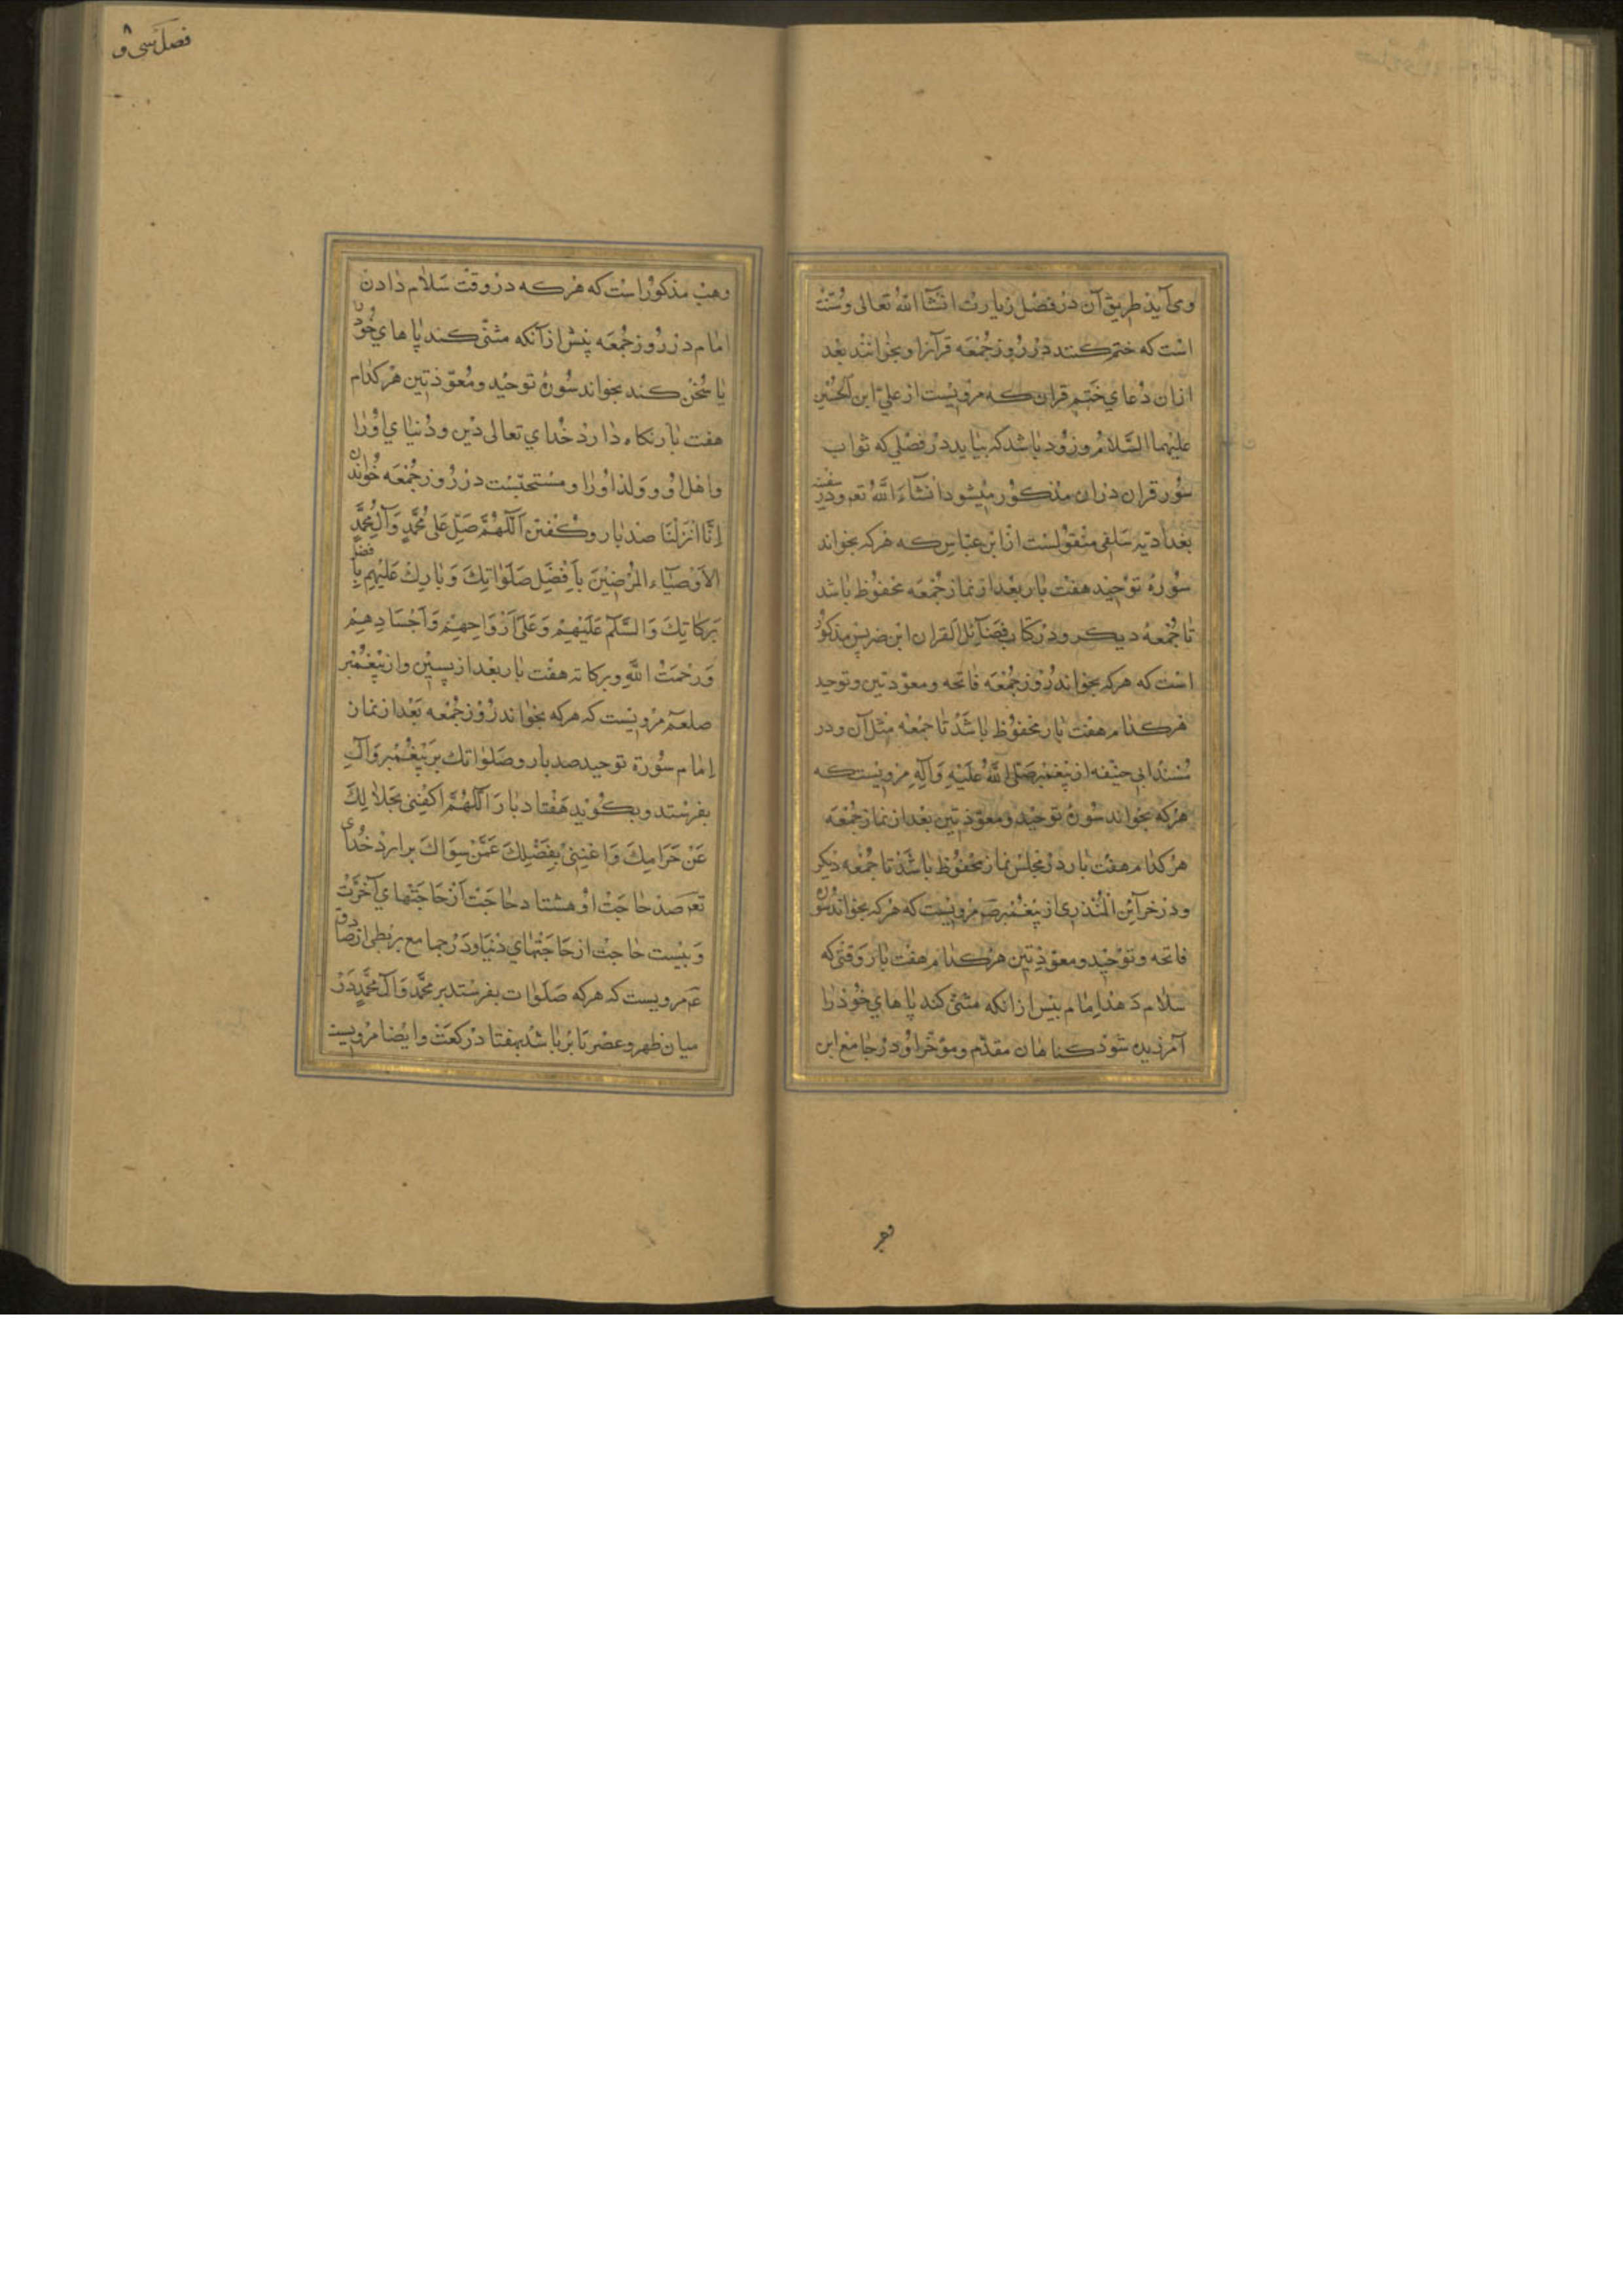 ومی‌آید طریق آن در فصل زیارت انشآ الله تعالی وسنت
است که ختم کنند در روز جمعه قرآنرا وبخوانند بعد
ازان دعای ختم قران که مرویست از علی ابن الحسین
علیهما السلام وزود باشد که بیاید در فصلی که ثواب
سور قران دران مذکور میشود انشآء الله تعم ودر
بغدادیه سلفی منقولست از ابن عباس که هرکه بخواند
سورۀ توحید هفت بار بعد از نماز جمعه محفوظ باشد
تا جمعۀ دیگر ودر کتاب فضآئل القران ابن ضریس مذکور
است که هرکه بخواند روز جمعه فاتحه ومعوذتین وتوحید
هرکدام هفت بار محفوظ باشد تا جمعه مثل آن ودر
مسند ابی حنیفه از پیغمبر صلی الله علیه وآله مرویست که
هرکه بخواند سورۀ توحید ومعوذتین بعد از نماز جمعه
هرکدام هفت بار در مجلس نماز محفوظ باشد تا جمعه دیگر
ودر خرآبن المنذری از پیغمبر صم مرویست که هرکه بخواند سوره
فاتحه وتوحید ومعوذتین هرکدام هفت بار وقتی که
سلام دهد امام پیش ازانکه مثنی کند پاهای خود را
آمرزیده شود کناهان مقدم ومؤخر او ودر جامع ابن
فصل سی و ۸
وهب مذکور است که هرکه در وقت سلام دادن
امام در روز جمعه پیش ازآنکه مثنی کند پاهای خود را
یا سخن کند بخواند سورۀ توحید ومعوذتین هرکدام
هفت بار نکاه دارد خدای تعالی دین ودنیای اورا
واهل او وولد اورا ومستحبست در روز جمعه خواندن
انا انزلنا صد بار وکفتن اللهم صل علی محمد وآل محمد
الاوصیآء المرضیین بافضل صلواتك وبارك علیهم بافضل
برکاتك والسلم علیهم وعلی ارواحهم واجسادهم
ورحمت الله وبرکاته هفت بار بعد از پسین واز پیغمبر
صلعم مرویست که هرکه بخواند روز جمعه بعد از نماز
امام سورة توحید صد بار وصلواتك بر پیغمبر وآل
بفرستد وبکوید هفتاد بار اللهم اکفنی بحلالك
عن حرامك واغننی بفضلك عمن سواك برارد خدای
تعم صد حاجت او هشتاد حاجت از حاجتهای آخرت
وبیست حاجت از حاجتهای دنیا ودر جامع بزنطی از صادق
عم مرویست که هرکه صلوات بفرستد بر محمد وآل محمد در
میان ظهر وعصر تا برباشد بهفتاد رکعت وایضا مرویست